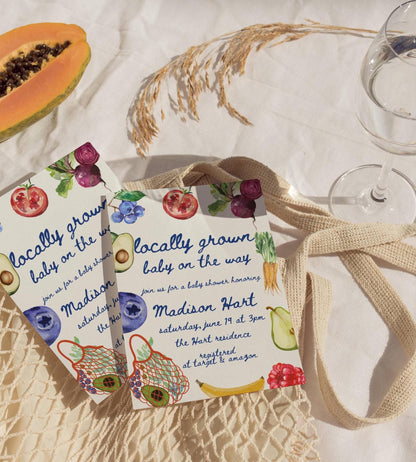 locally grown
baby on the way
join us for a baby
Madison
saturday, june
the Hart
locally grown
baby on the way
join us for a baby shower honoring
Madison Hart
saturday, june 19 at 3pm
the Hart residence
registered
at target & amazon